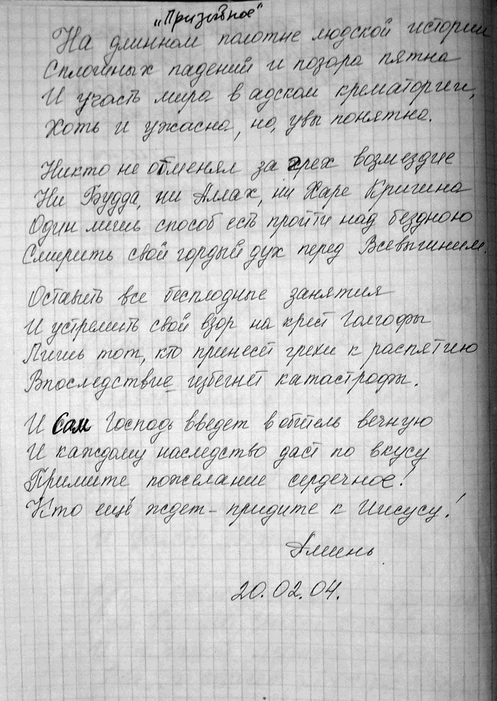 „Призывное"
На длинном полотне людской истории
Сплошных падений и позора пятна
И участь мира в адском крематории,
Хоть и ужасна, но, увы понятна.
Никто не отменял за грех возмездие
Ни Будда, ни Аллах, ни Харе Кришна
Один лишь способ есть пройти над бездною
Смирить свой гордый дух перед Всевышнем.
Оставить все бесплодные занятия
И устремить свой взор на крест Голгофы
Лишь тот, кто принесёт грехи к распятию
Впоследствие избегнет катастрофы.
И Сам Господь введет в обитель вечную
И каждому наследство даст по вкусу
Примите пожелание сердечное!
Кто ещё ждет - придите к Иисусу!
Аминь.
20.02.04.